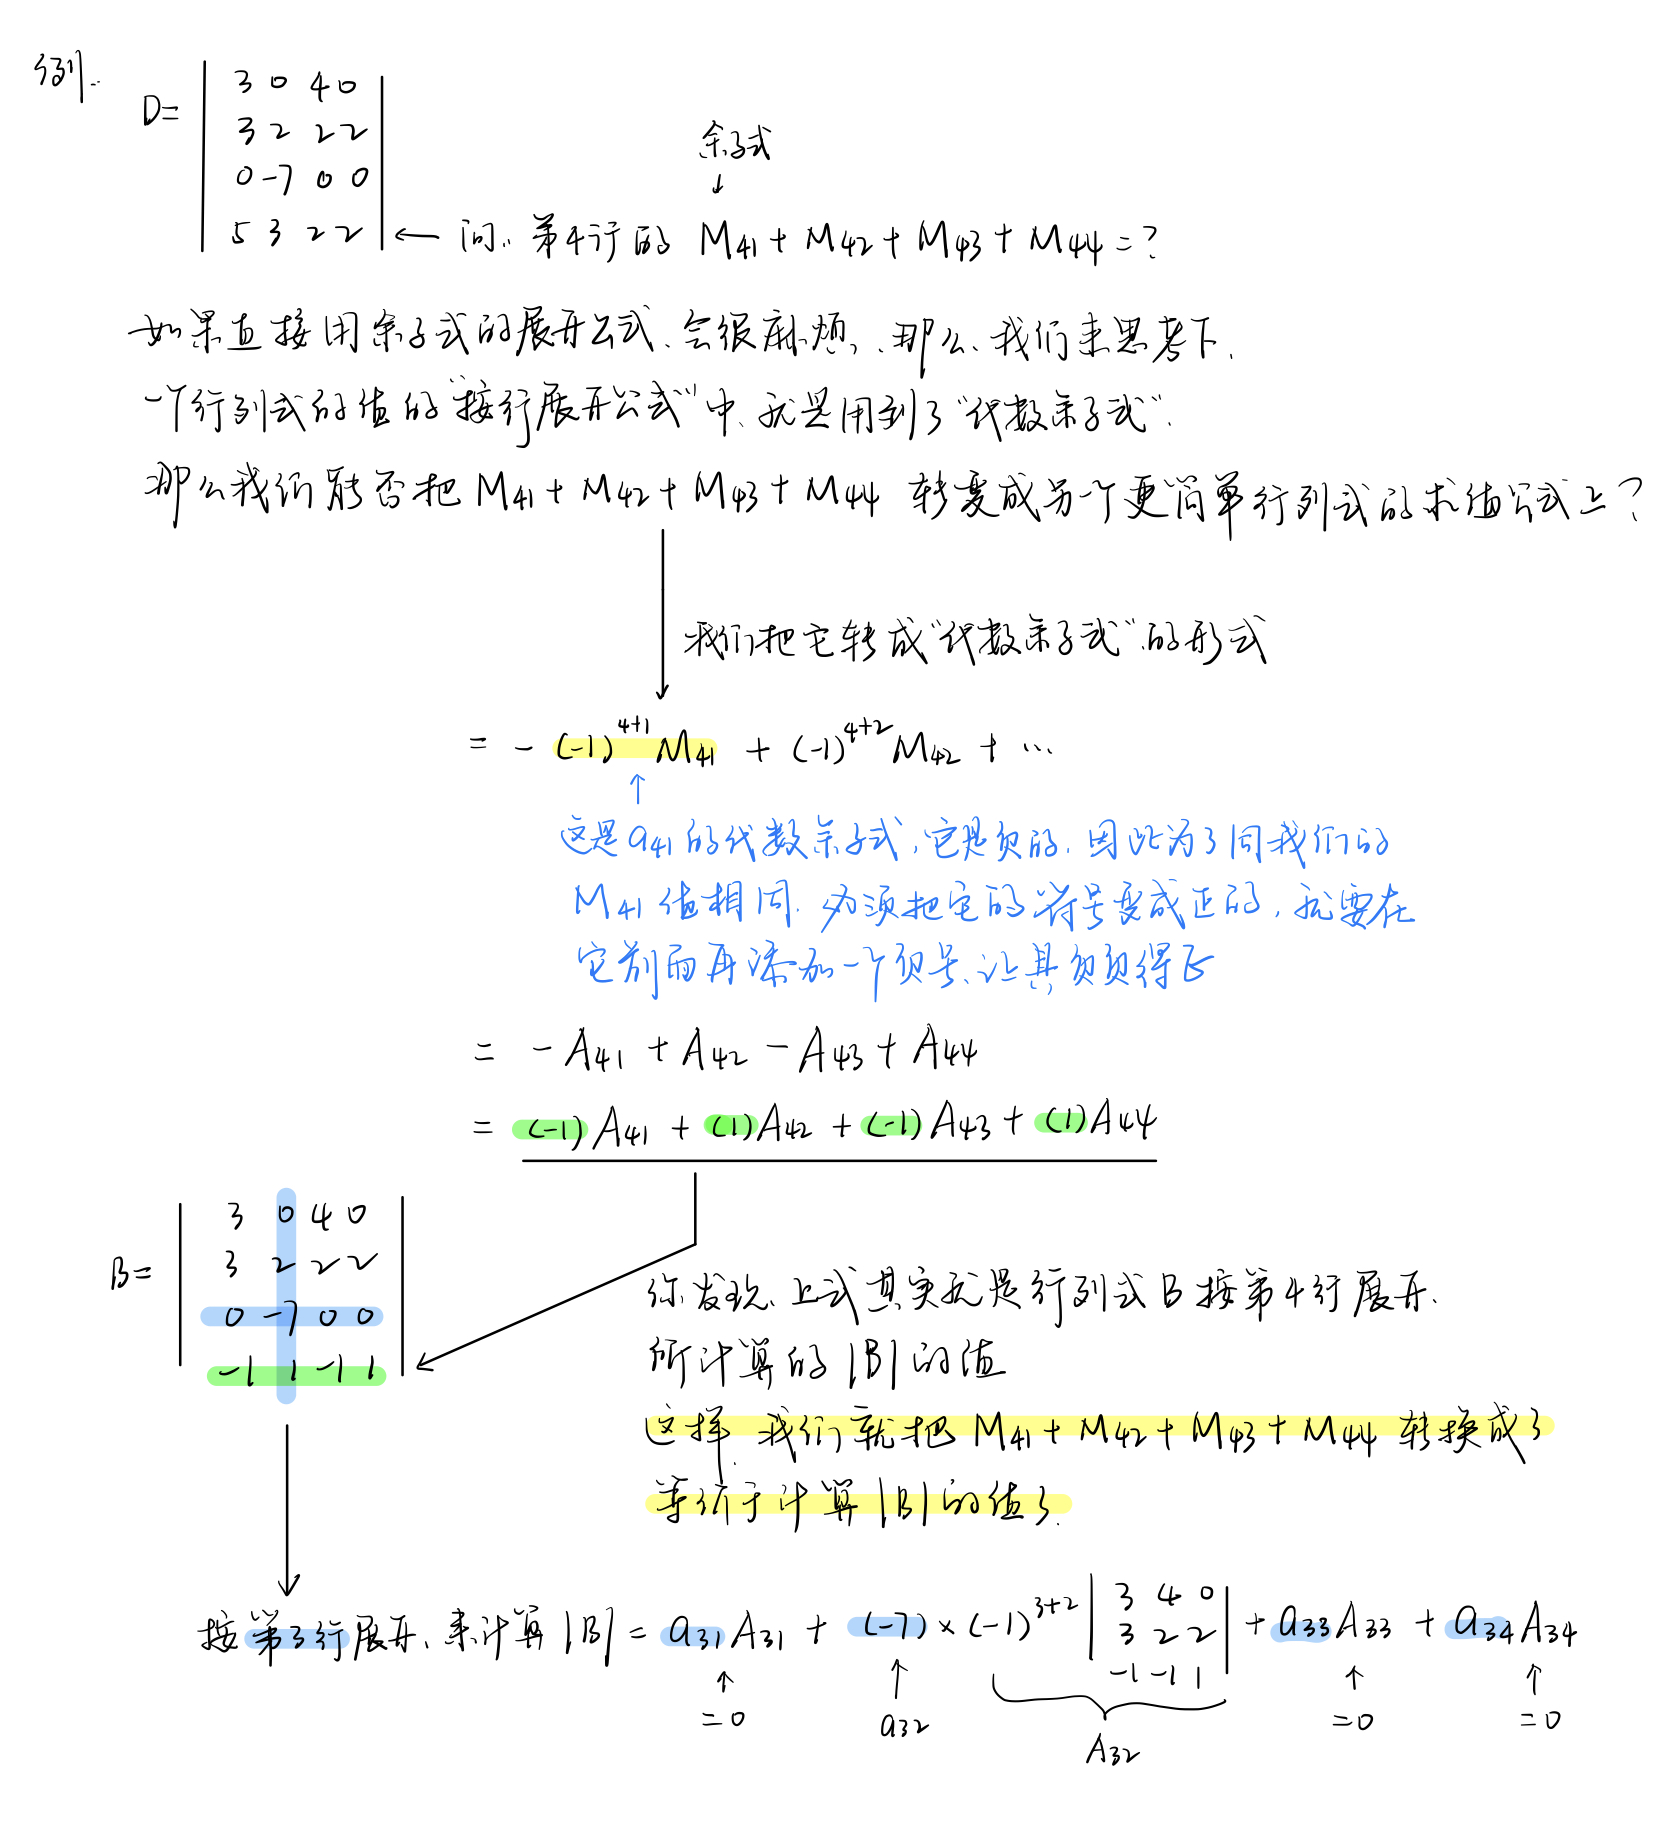 例.
D= | 3 0 4 0
3 2 2 2
0 -7 0 0
5 3 2 2 |
余子式
↓
← 问: 第4行的 M41 + M42 + M43 + M44 = ?
如果直接用余子式的展开公式、会很麻烦、那么、我们来思考下.
一个行列式的值的"按行展开公式"中、就是用到了"代数余子式".
那么我们能否把 M41 + M42 + M43 + M44 转变成另一个更简单行列式的求值公式上?
我们把它转成"代数余子式"的形式
= - (-1)^4+1 M41 + (-1)^4+2 M42 + ...
↑
这是a41的代数余子式,它是负的.因此为了同我们的
M41值相同.必须把它的符号变成正的,就要在
它前面再添加一个负号、让其负负得正
= - A41 + A42 - A43 + A44
= (-1) A41 + (1) A42 + (-1) A43 + (1) A44
B= | 3 0 4 0
3 2 2 2
0 -7 0 0
-1 1 -1 1 |
你发现、上式其实就是行列式B按第4行展开.
所计算的|B|的值
这样.我们就把 M41 + M42 + M43 + M44 转换成了
等价于计算|B|的值了.
按第3行展开、来计算|B| = a31 A31 + (-7) × (-1)^3+2 | 3 4 0
3 2 2
-1 -1 1 | + a33 A33 + a34 A34
↑ ↑ ↑ ↑
=0 a32 =0 =0
A32